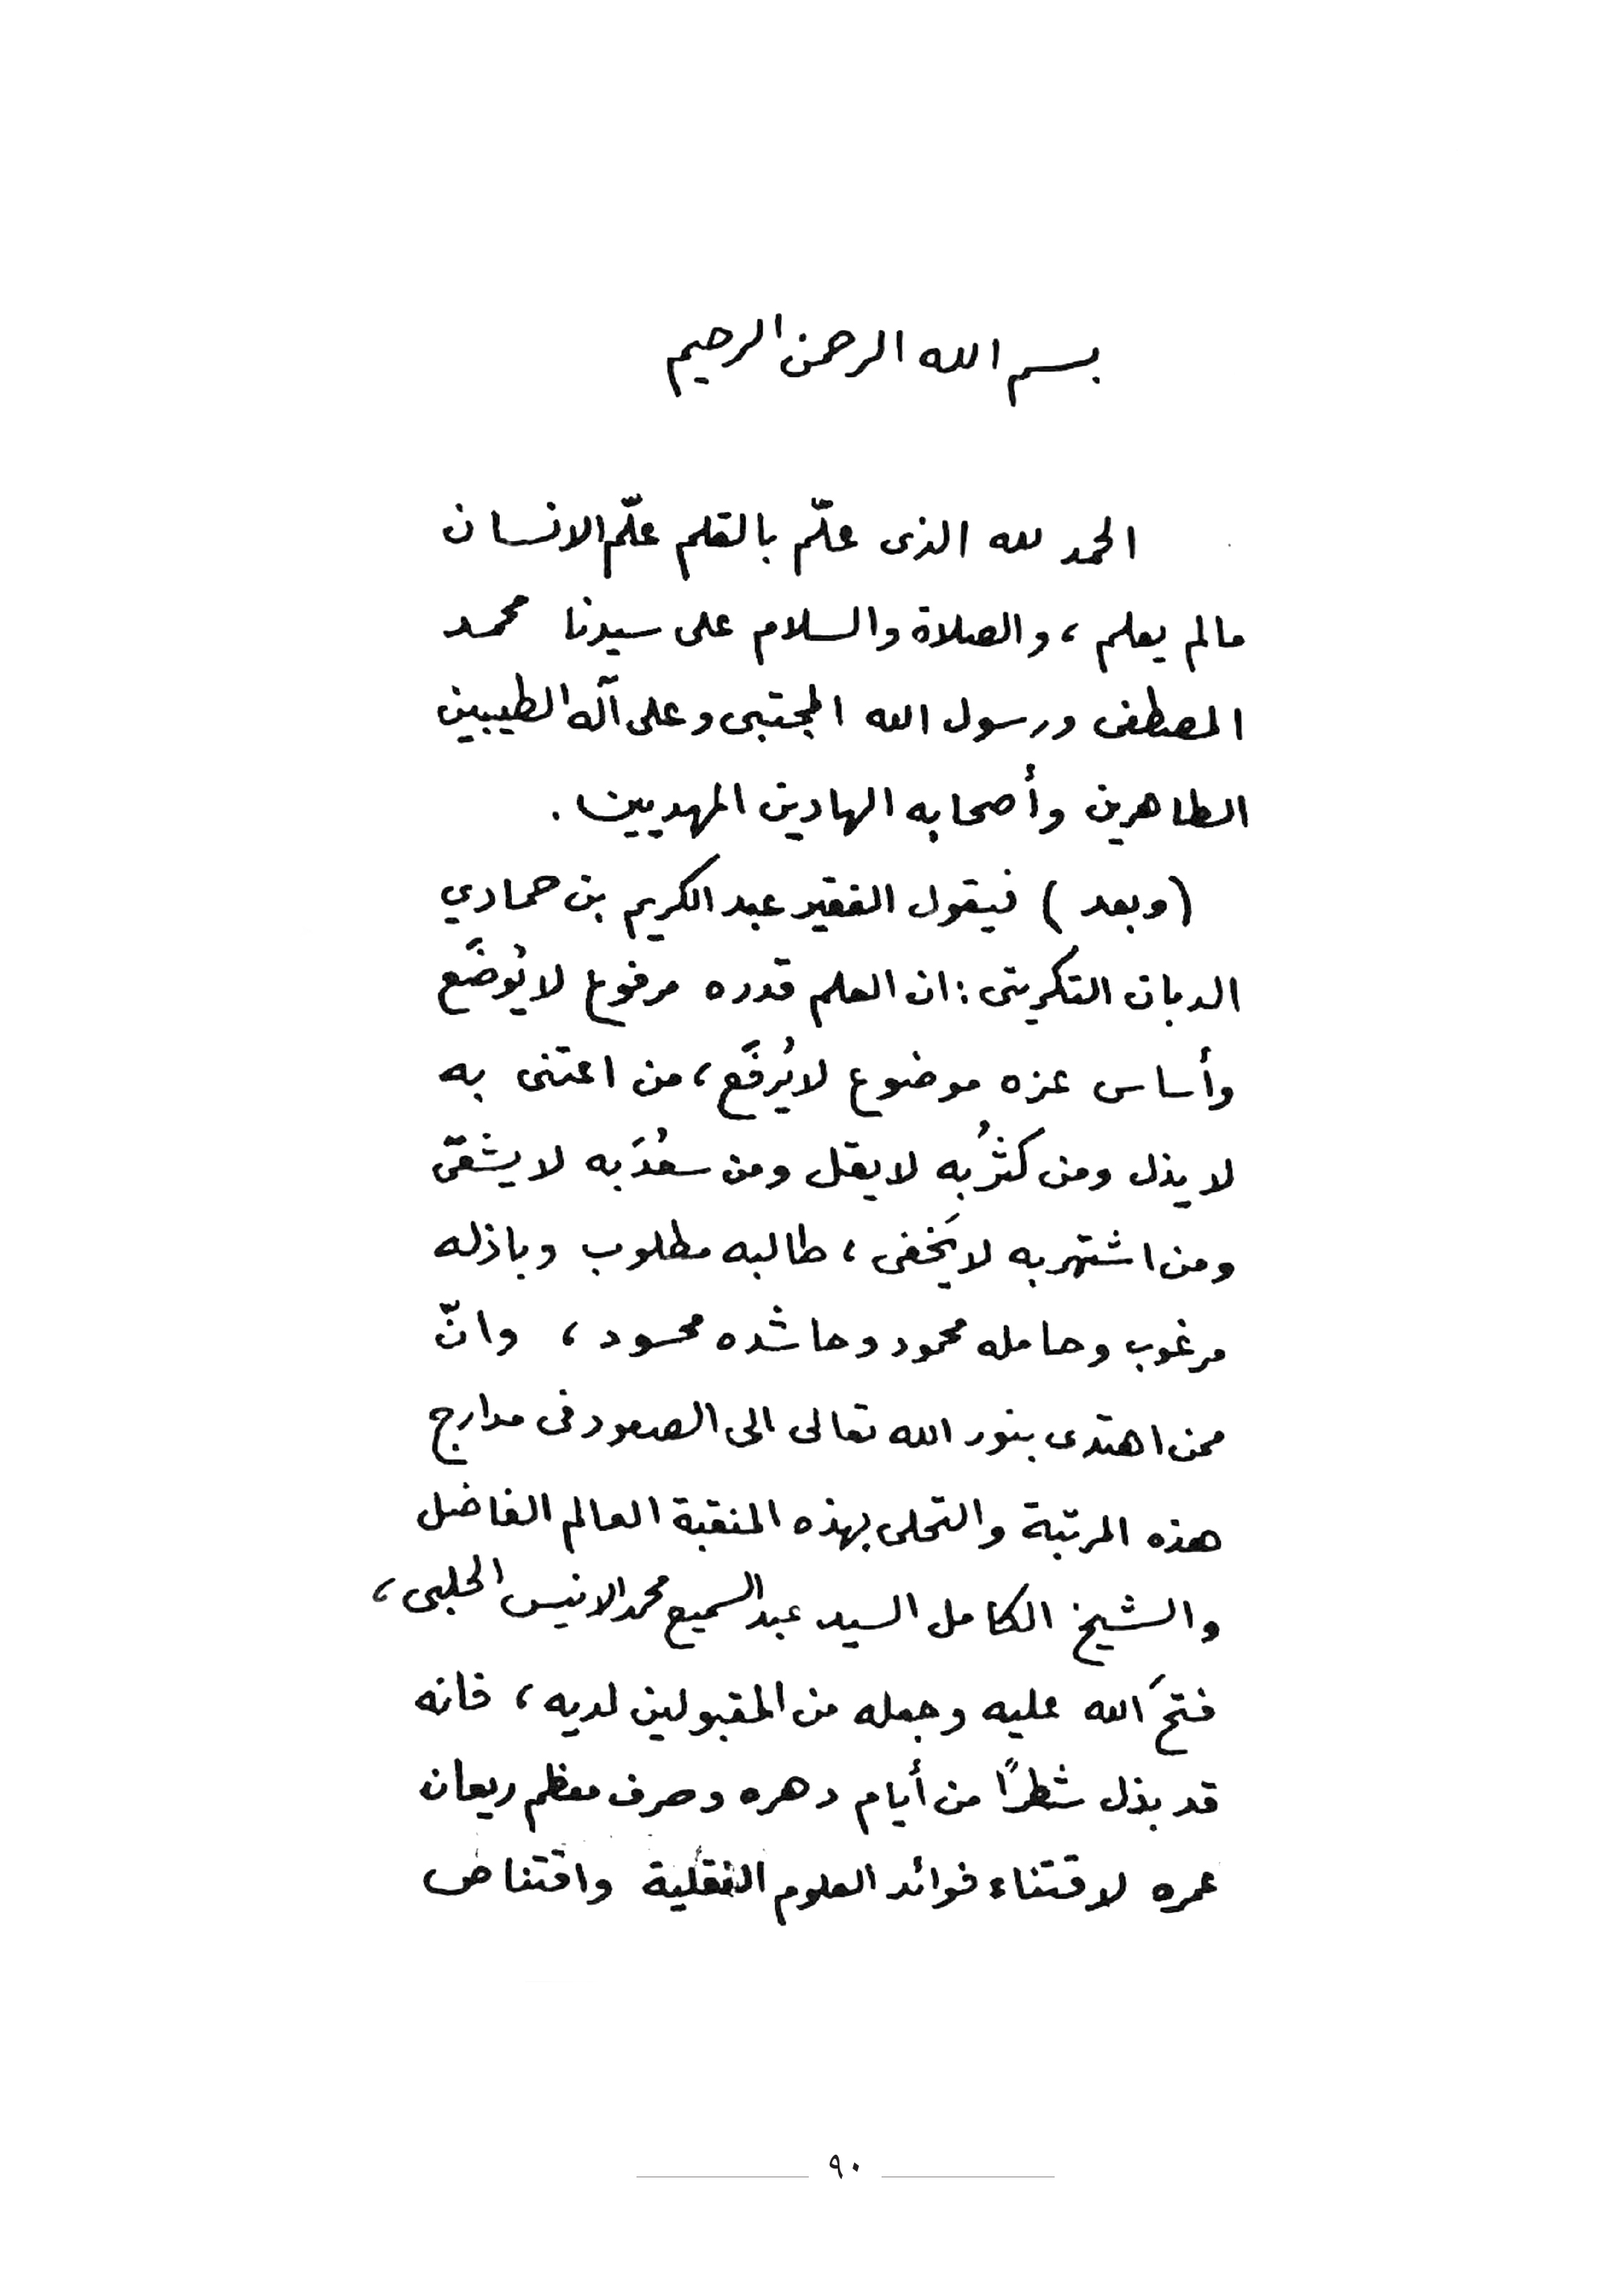 بسم الله الرحمن الرحيم
الحمد لله الذى علّم بالقلم علّم الانسان
مالم يعلم ، والصلاة والسلام على سيدنا محمد
المصطفى ورسول الله المجتبى وعلى آله الطيبين
الطاهرين وأصحابه الهادين المهديين .
( وبعد ) فيقول الفقير عبد الكريم بن حمادي
الدبان التكريتى : ان العلم قدره مرفوع لا يُوضَع
وأساس عزه موضوع لا يُرفَع ، من اعتنى به
لا يذل ومن كثُر به لا يقل ومن سعُدَ به لا يشقى
ومن اشتهر به لا يَخفى ، طالبه مطلوب وباذله
مرغوب وحامله محمود وحاشده محسود ، وانّ
ممن اهتدى بنور الله تعالى الى الصعود فى مدارج
هذه المرتبة والتحلى بهذه المنقبة العالم الفاضل
والشيخ الكامل السيد عبد السميع محمد الانيس الحلبى ،
فتحَ الله عليه وجعله من المقبولين لديه ، فانه
قد بذل شطرًا من أيام دهره وصرف معظم ريعان
عمره لاقتناء فوائد العلوم النقلية واقتناص
٩٠